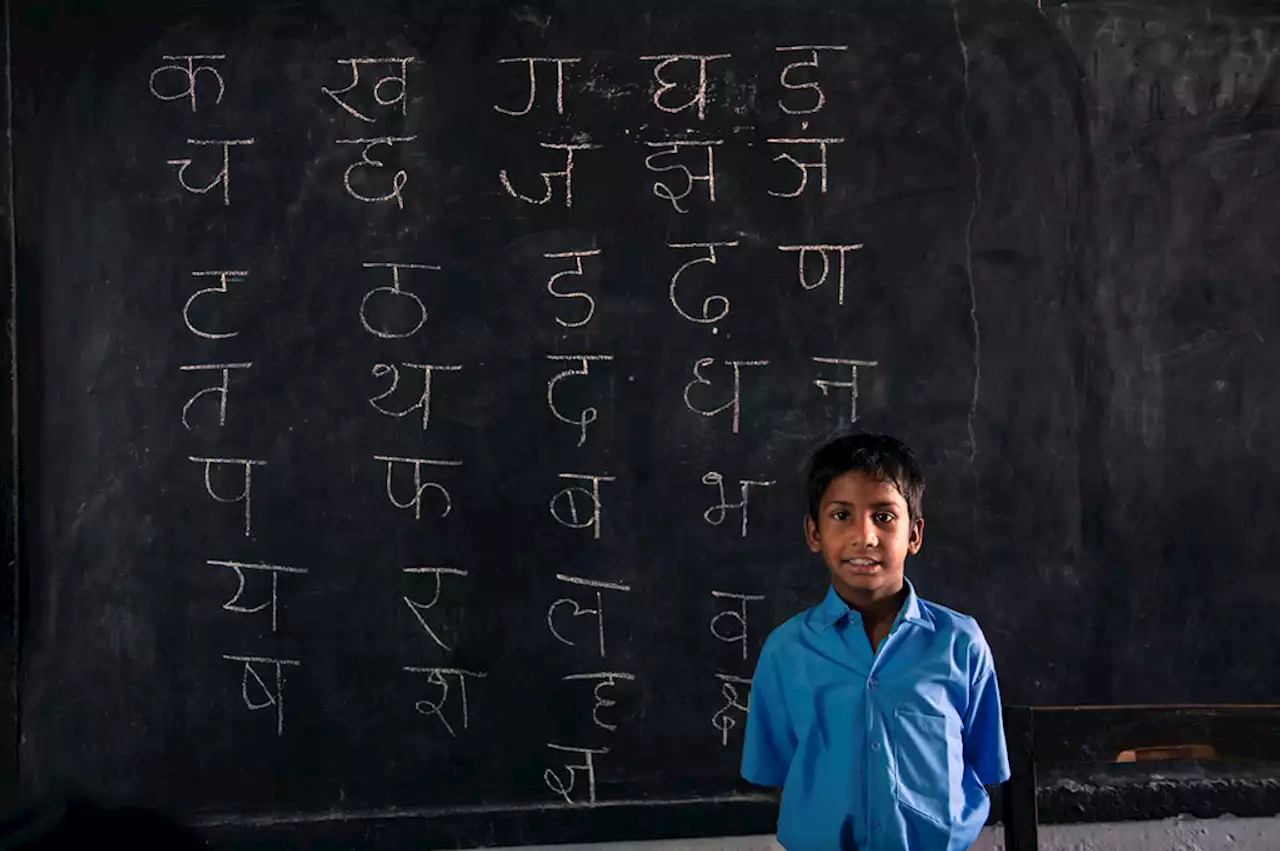 क ख ग घ ड़
च छ ज झ ञ
ट ठ ड ढ़ ण
त थ द ध न
प फ ब भ
य र ल व
ष श ह क्ष
ज्ञ